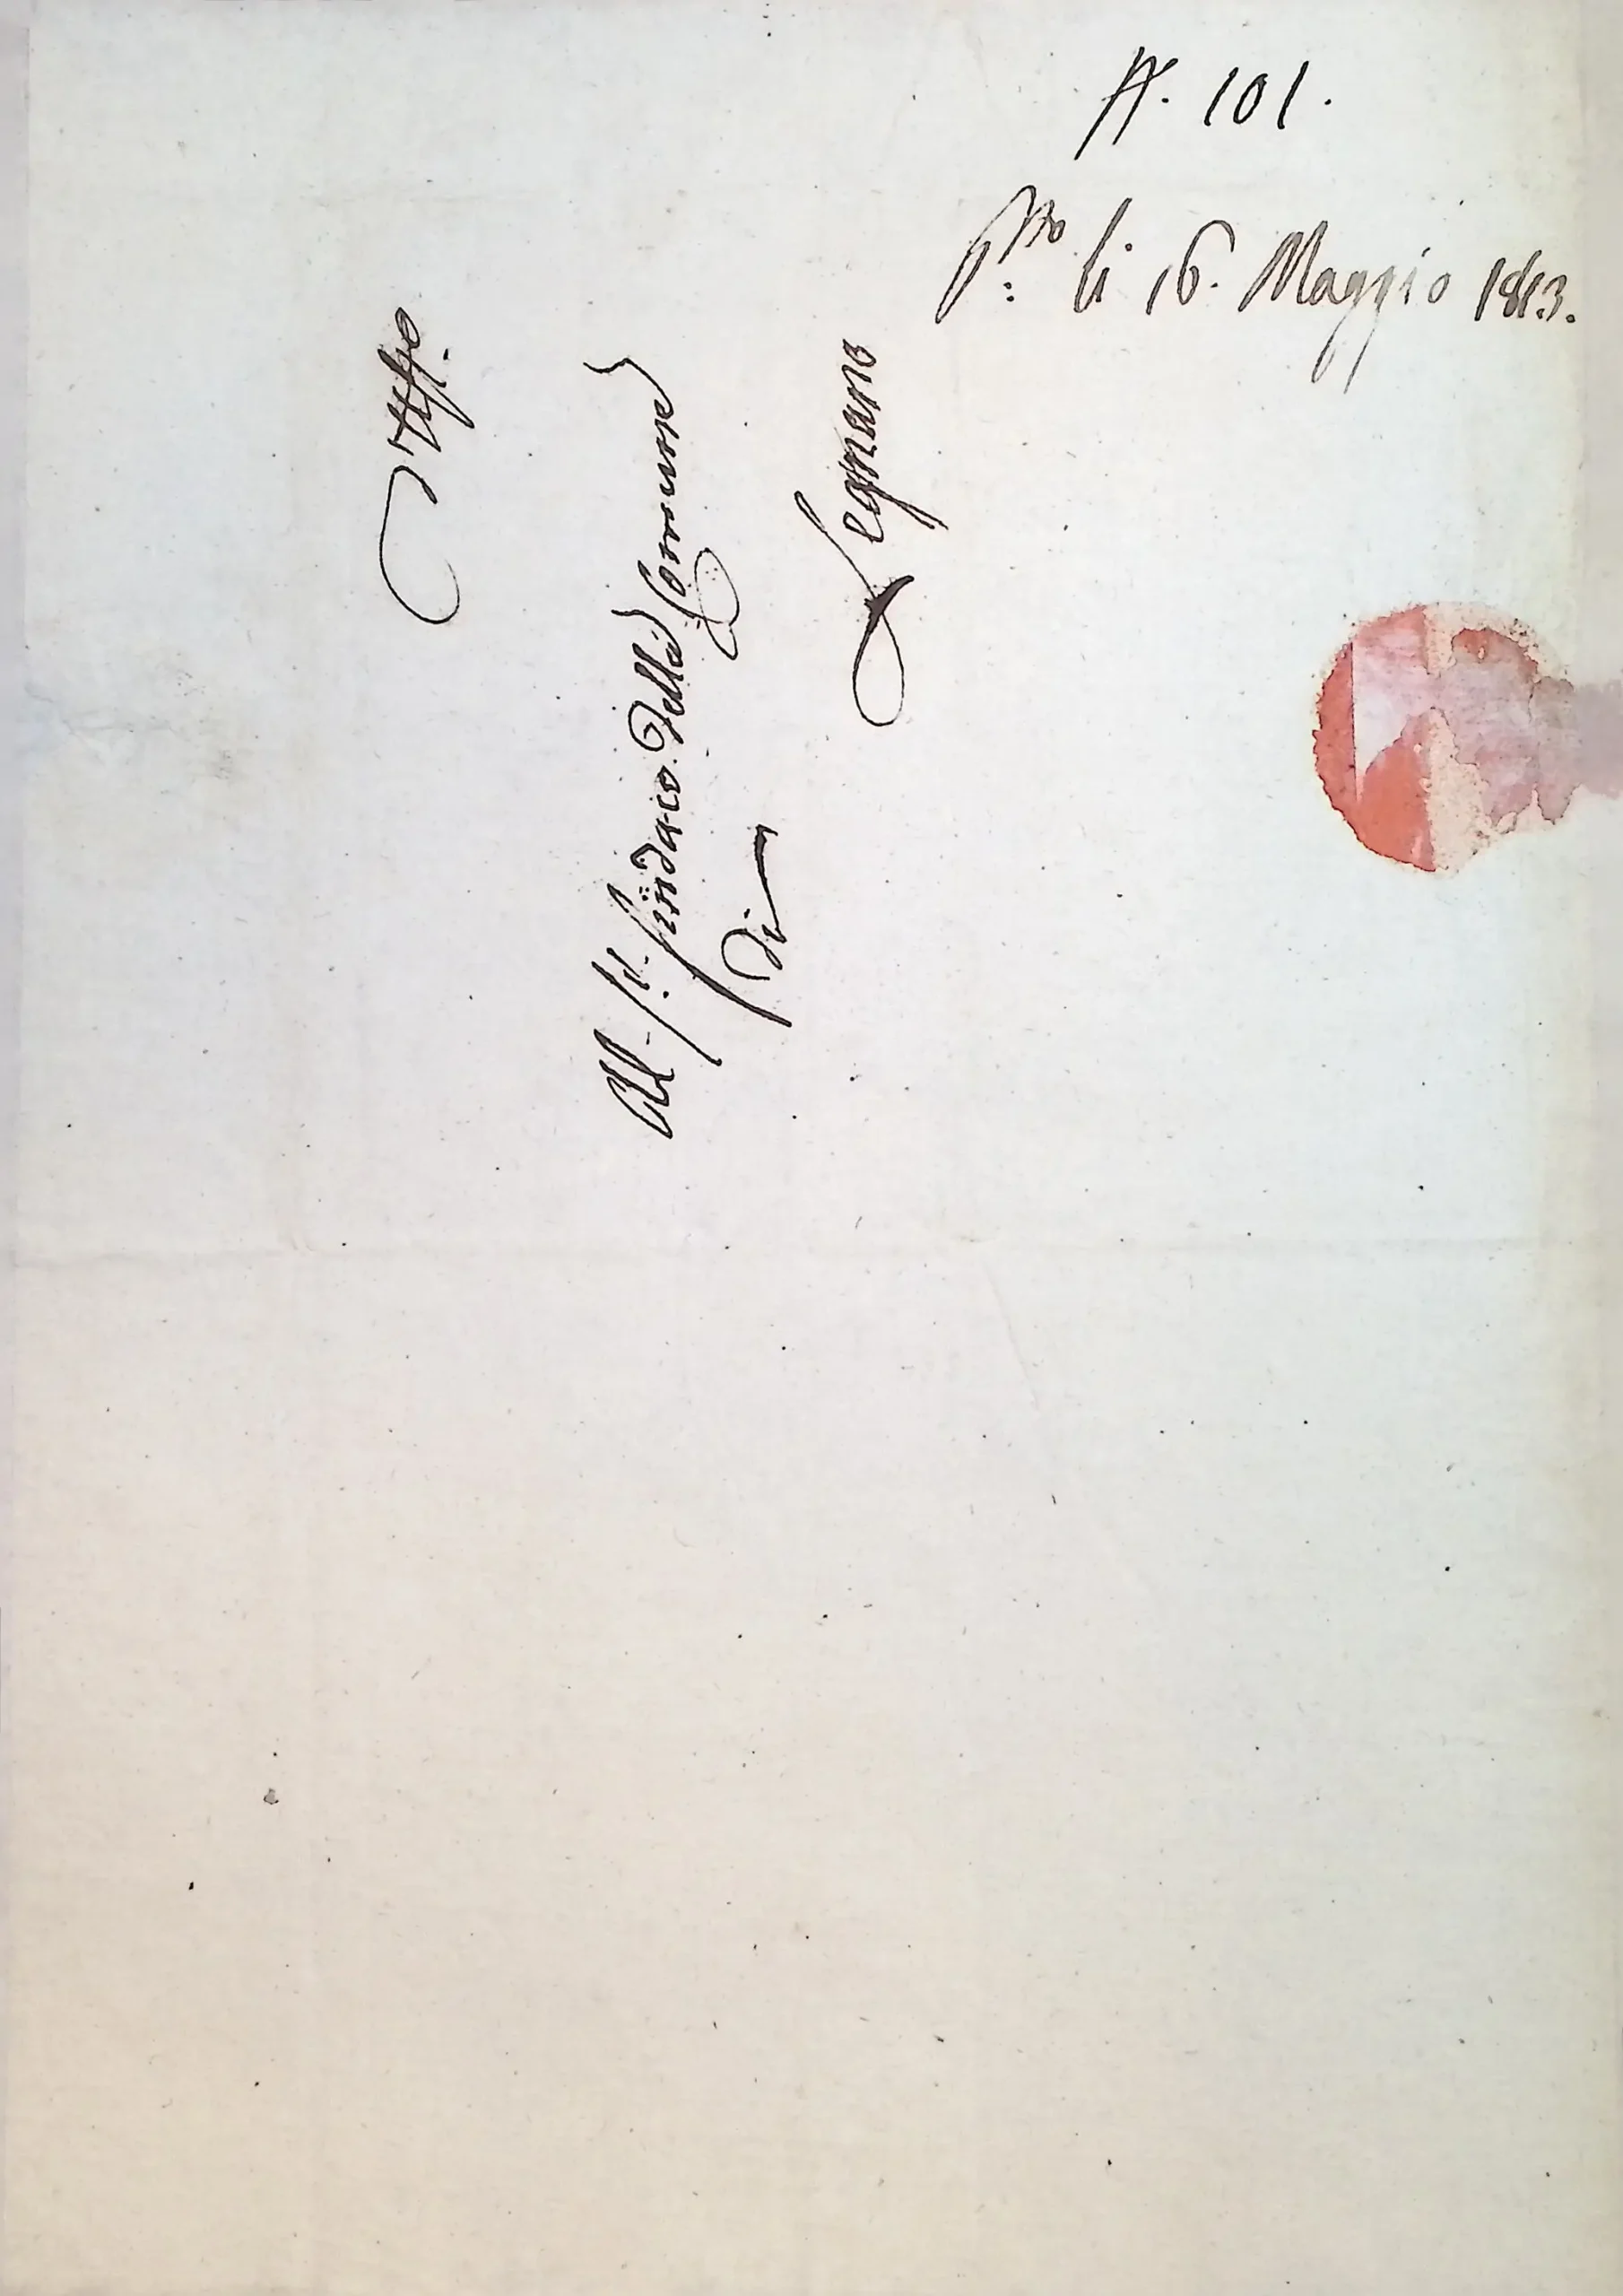 N. 101.
P.to li 16. Maggio 1813.
Uff.o
Al Sig.r Sindaco della Comune
di
Legnano